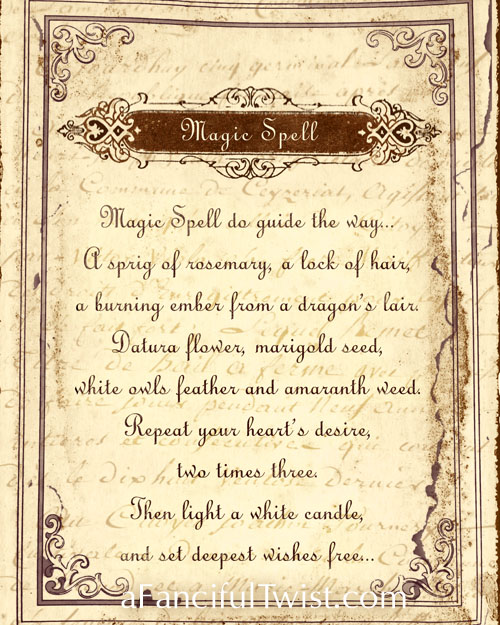 Magic Spell
Magic Spell do guide the way...
A sprig of rosemary, a lock of hair,
a burning ember from a dragon's lair.
Datura flower, marigold seed,
white owls feather and amaranth weed.
Repeat your heart's desire,
two times three.
Then light a white candle,
and set deepest wishes free...
aFancifulTwist.com